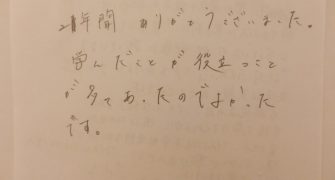 21年間 ありがとうございました。
学んだことが役立つこと
が多くてあったのですがった
です。